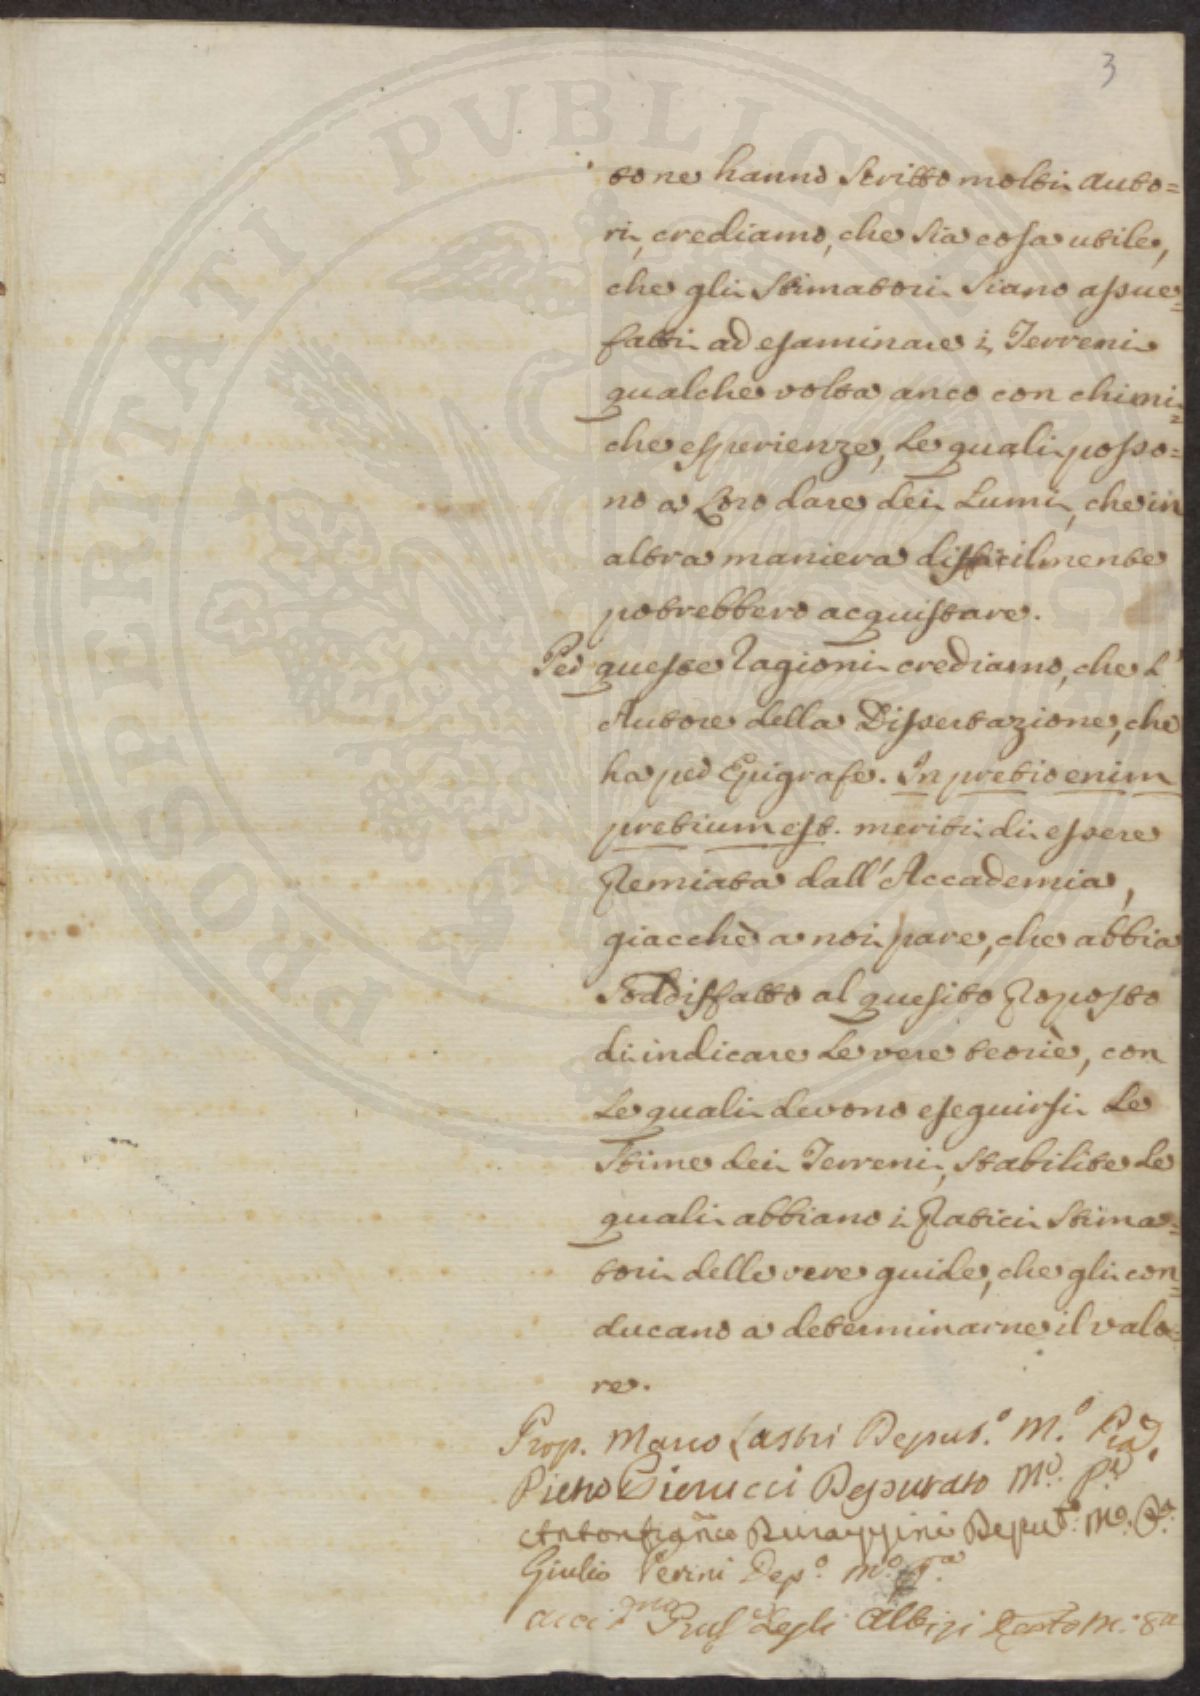 3
PROSPERITATI PVBLICAE
to ne hanno scritto molti Auto=
ri, crediamo, che sia cosa utile,
che gli Stimatori siano assue=
fatti ad esaminare i Terreni
qualche volta anco con chimi=
che esperienze, le quali posso=
no a Loro dare dei Lumi, che in
altra maniera difficilmente
potrebbero acquistare.
Per queste Ragioni crediamo, che l'
Autore della Dissertazione, che
ha per Epigrafe. In pretio enim
pretium est. meriti di essere
Premiata dall'Accademia,
giacchè a noi pare, che abbia
Soddisfatto al quesito Proposto
di indicare le vere teorìe, con
le quali devono eseguirsi le
Stime dei Terreni, stabilite le
quali abbiano i Pratici Stima=
tori delle vere guide, che gli con=
ducano a determinarne il valo=
re.
Prop. Marco Lastri Deput.º M.º
Pietro Pierucci Deputato M.º
Deput.º M.º
Giulio Perini Dep.º M.º
degli Albizi